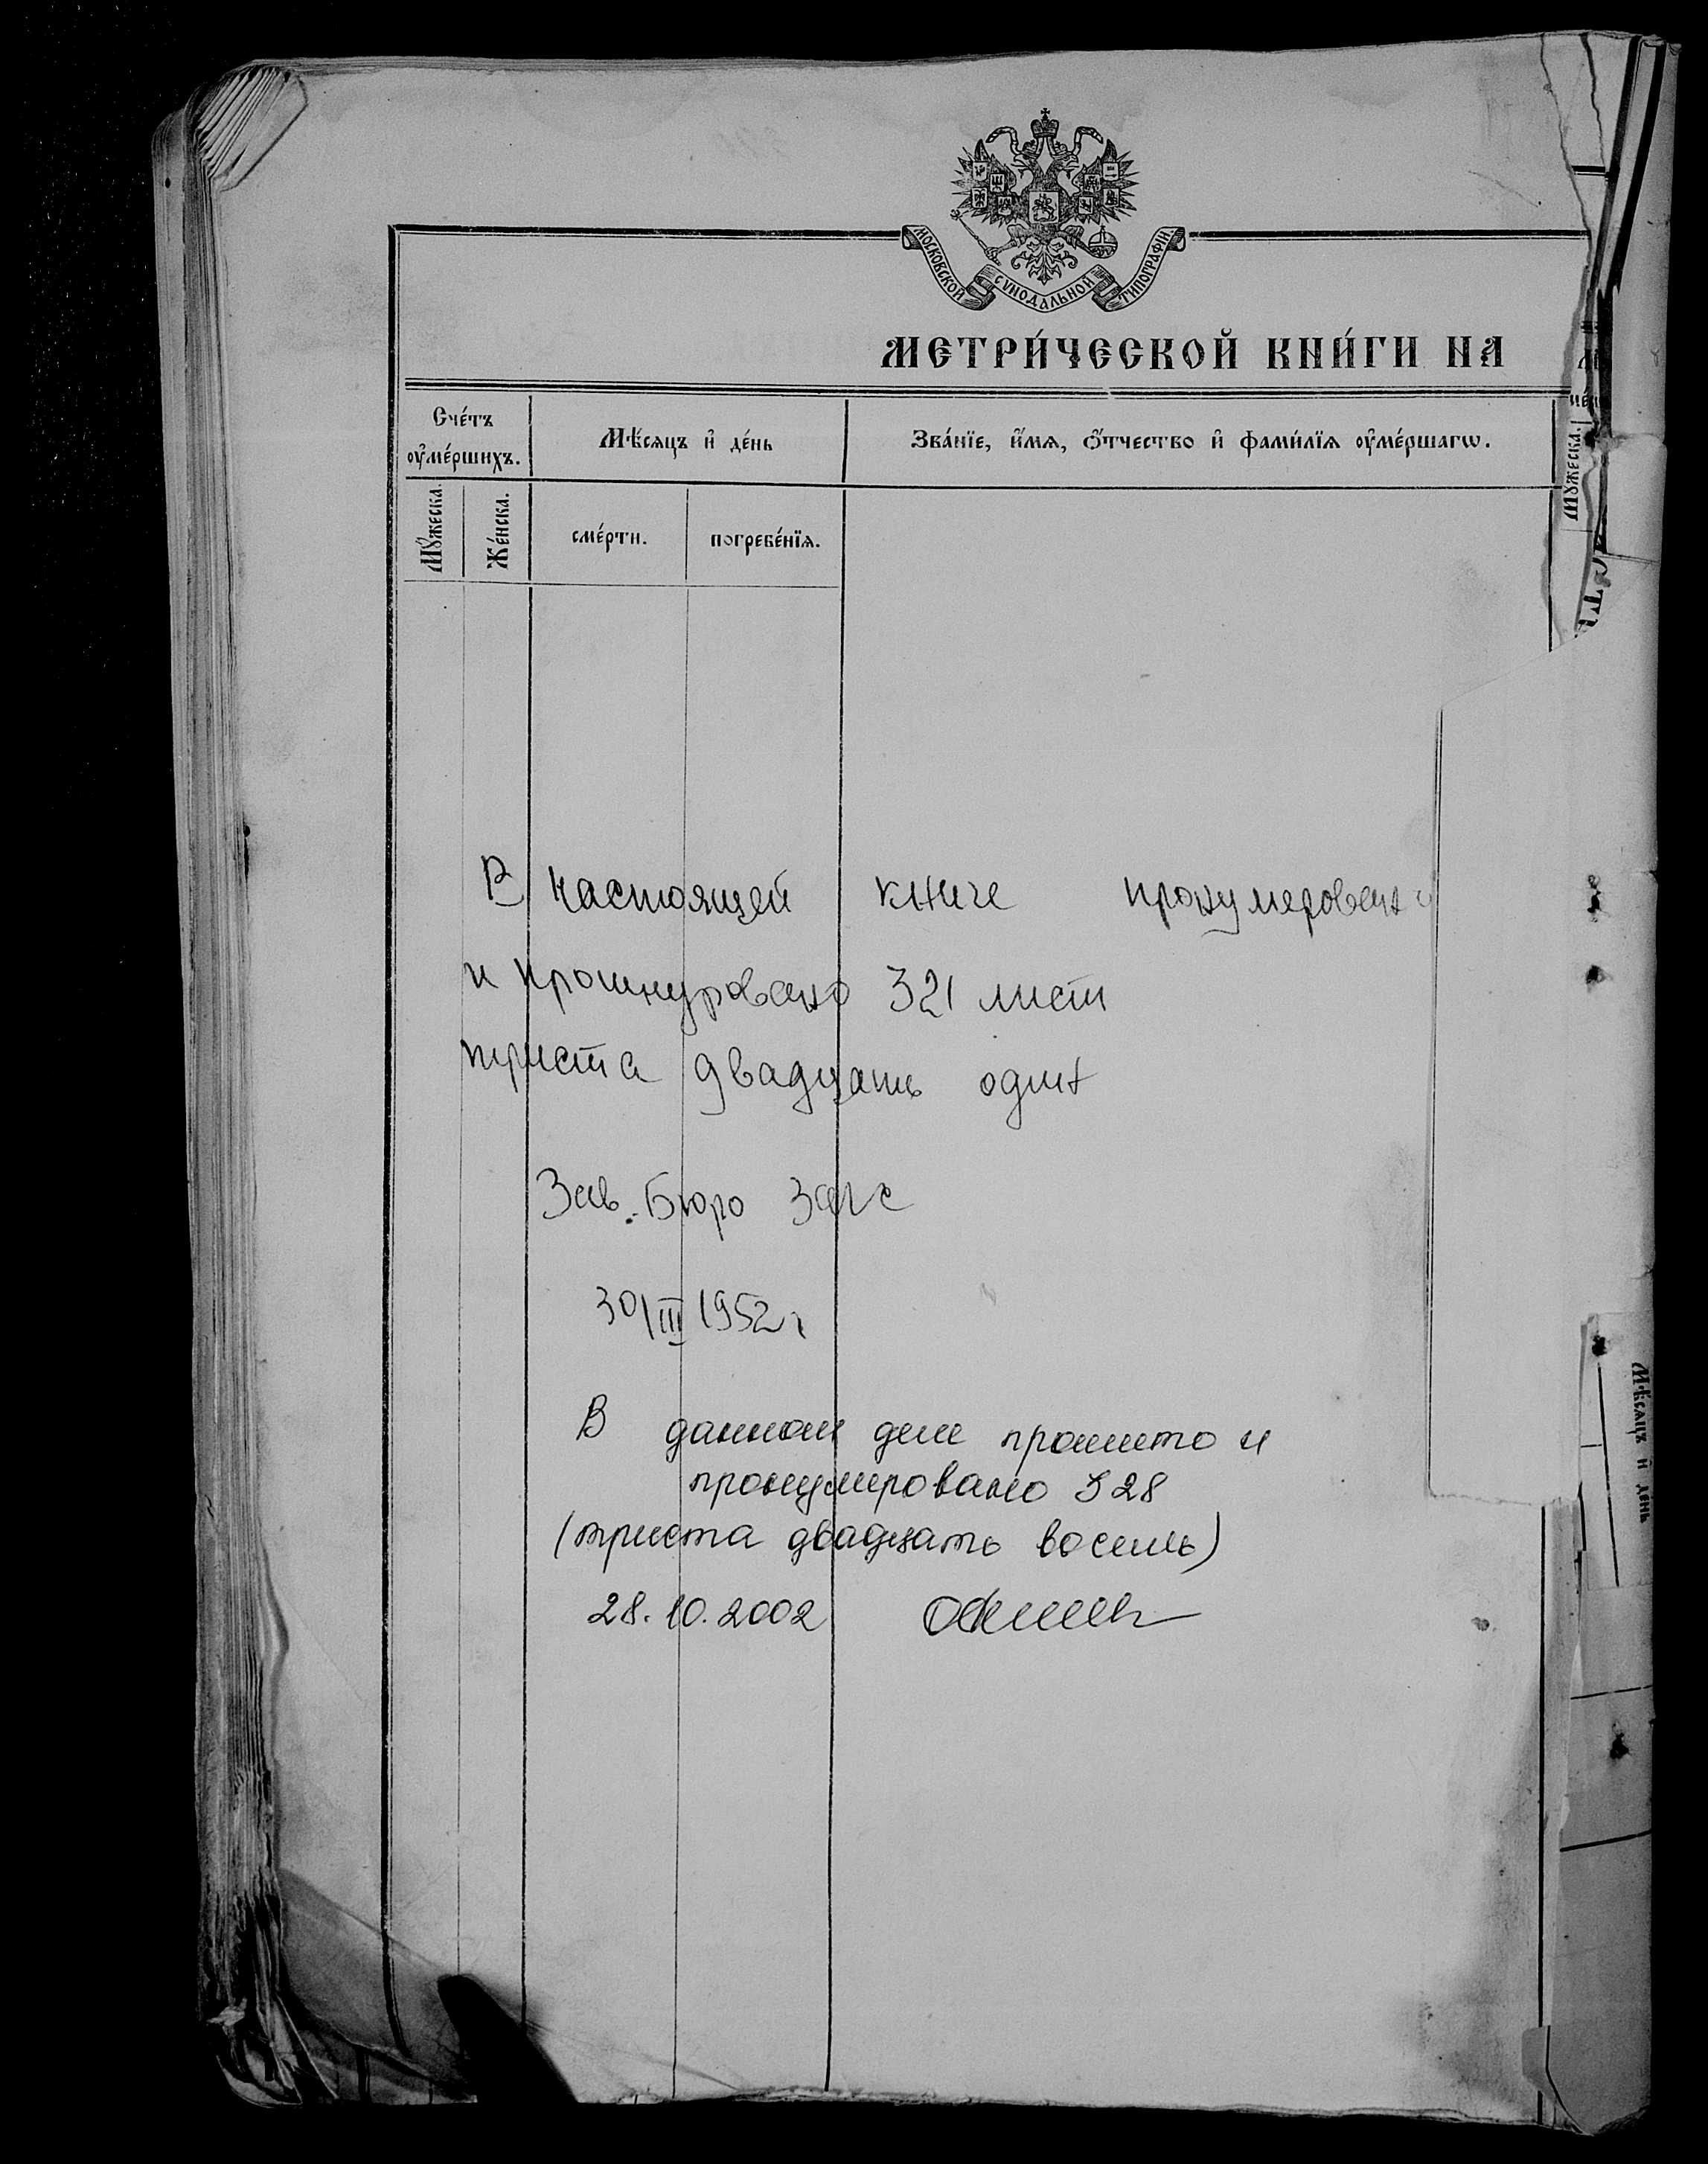 МОСКОВСКОЙ СУНОДАЛЬНОЙ ТИПОГРАФІИ
МЕТРИ́ЧЕСКОЙ КНИ́ГИ НА
Сче́тъ ᲂу҆ме́ршихъ.
Мѣ́сяцъ и҆ де́нь
Зва́нїе, и҆́мѧ, ѻ҆́тчество и҆ фами́лїѧ ᲂу҆ме́ршагѡ.
Мꙋ́жеска.
Же́нска.
сме́рти.
погребе́нїѧ.
Мꙋ́жеска.
В настоящей книге пронумерован
и прошнуровано 321 лист
триста двадцать один
Зав. Бюро Загс
30/III 1952 г
В данном деле прошито и
пронумеровано 328
(триста двадцать восемь)
28.10.2002
Мѣ́сяцъ и҆ де́нь